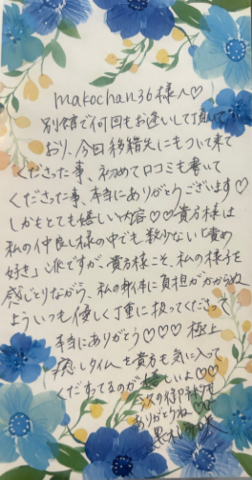 makochan36様へ♡
別館で何回もお逢いして頂いて
おり、今回移籍先にもついて来て
くださった事、初めて口コミも書いて
くださった事、本当にありがとうございます♡
しかもとても嬉しい内容♡♡貴方様は
私の仲良し様の中でも数少ない「責め
好き」派ですが、貴方様こそ、私の様子を
感じとりながら、私の身体に負担がかからぬ
よういつも優しく丁重に扱ってくださって
本当にありがとう♡♡♡極上
癒しタイムを貴方も気に入って
くださってるのが嬉しいよ♡♡
次の御礼
ありがとうね